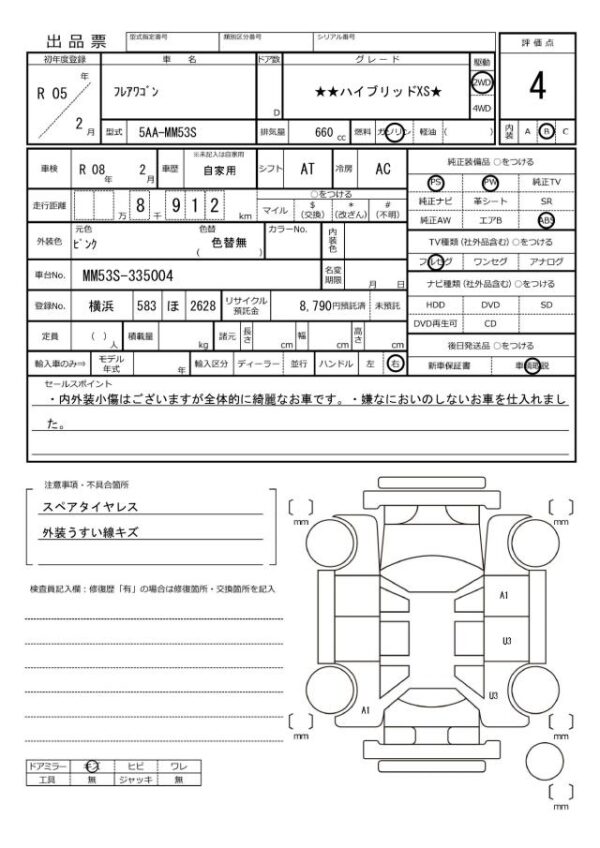 出品票
型式指定番号 類別区分番号 シリアル番号
評価点
初年度登録 車名 ドア数 グレード 駆動
R 05 年 2 月
フレアワゴン D ★★ハイブリッドXS★ 2WD 4WD
4
型式 5AA-MM53S 排気量 660 cc 燃料 ガソリン 軽油 ( ) 内装 A B C
車検 R 08 年 2 月 車歴 ※未記入は自家用 自家用 シフト AT 冷房 AC
走行距離 万 8 千 9 1 2 km
○をつける
マイル $(交換) *(改ざん) #(不明)
外装色 元色 ピンク 色替 色替無 ( ) カラーNo. 内装色
車台No. MM53S-335004 名変期限 月 日
登録No. 横浜 583 ほ 2628 リサイクル預託金 8,790円預託済 未預託
定員 ( ) 人 積載量 kg 諸元 長さ cm 幅 cm 高さ cm
輸入車のみ⇒ モデル年式 年 輸入区分 ディーラー 並行 ハンドル 左 右
純正装備品 ○をつける
PS PW 純正TV
純正ナビ 革シート SR
純正AW エアB ABS
TV種類 (社外品含む) ○をつける
フルセグ ワンセグ アナログ
ナビ種類 (社外品含む) ○をつける
HDD DVD SD
DVD再生可 CD
後日発送品 ○をつける
新車保証書 車輌取説
セールスポイント
・内外装小傷はございますが全体的に綺麗なお車です。・嫌なにおいのしないお車を仕入れまし
た。
注意事項・不具合箇所
スペアタイヤレス
外装うすい線キズ
検査員記入欄：修復歴「有」の場合は修復箇所・交換箇所を記入
ドアミラー キズ ヒビ ワレ
工具 無 ジャッキ 無
〔 〕 mm
〔 〕 mm
A1
U3
U3
A1
〔 〕 mm
〔 〕 mm
〔 〕 mm